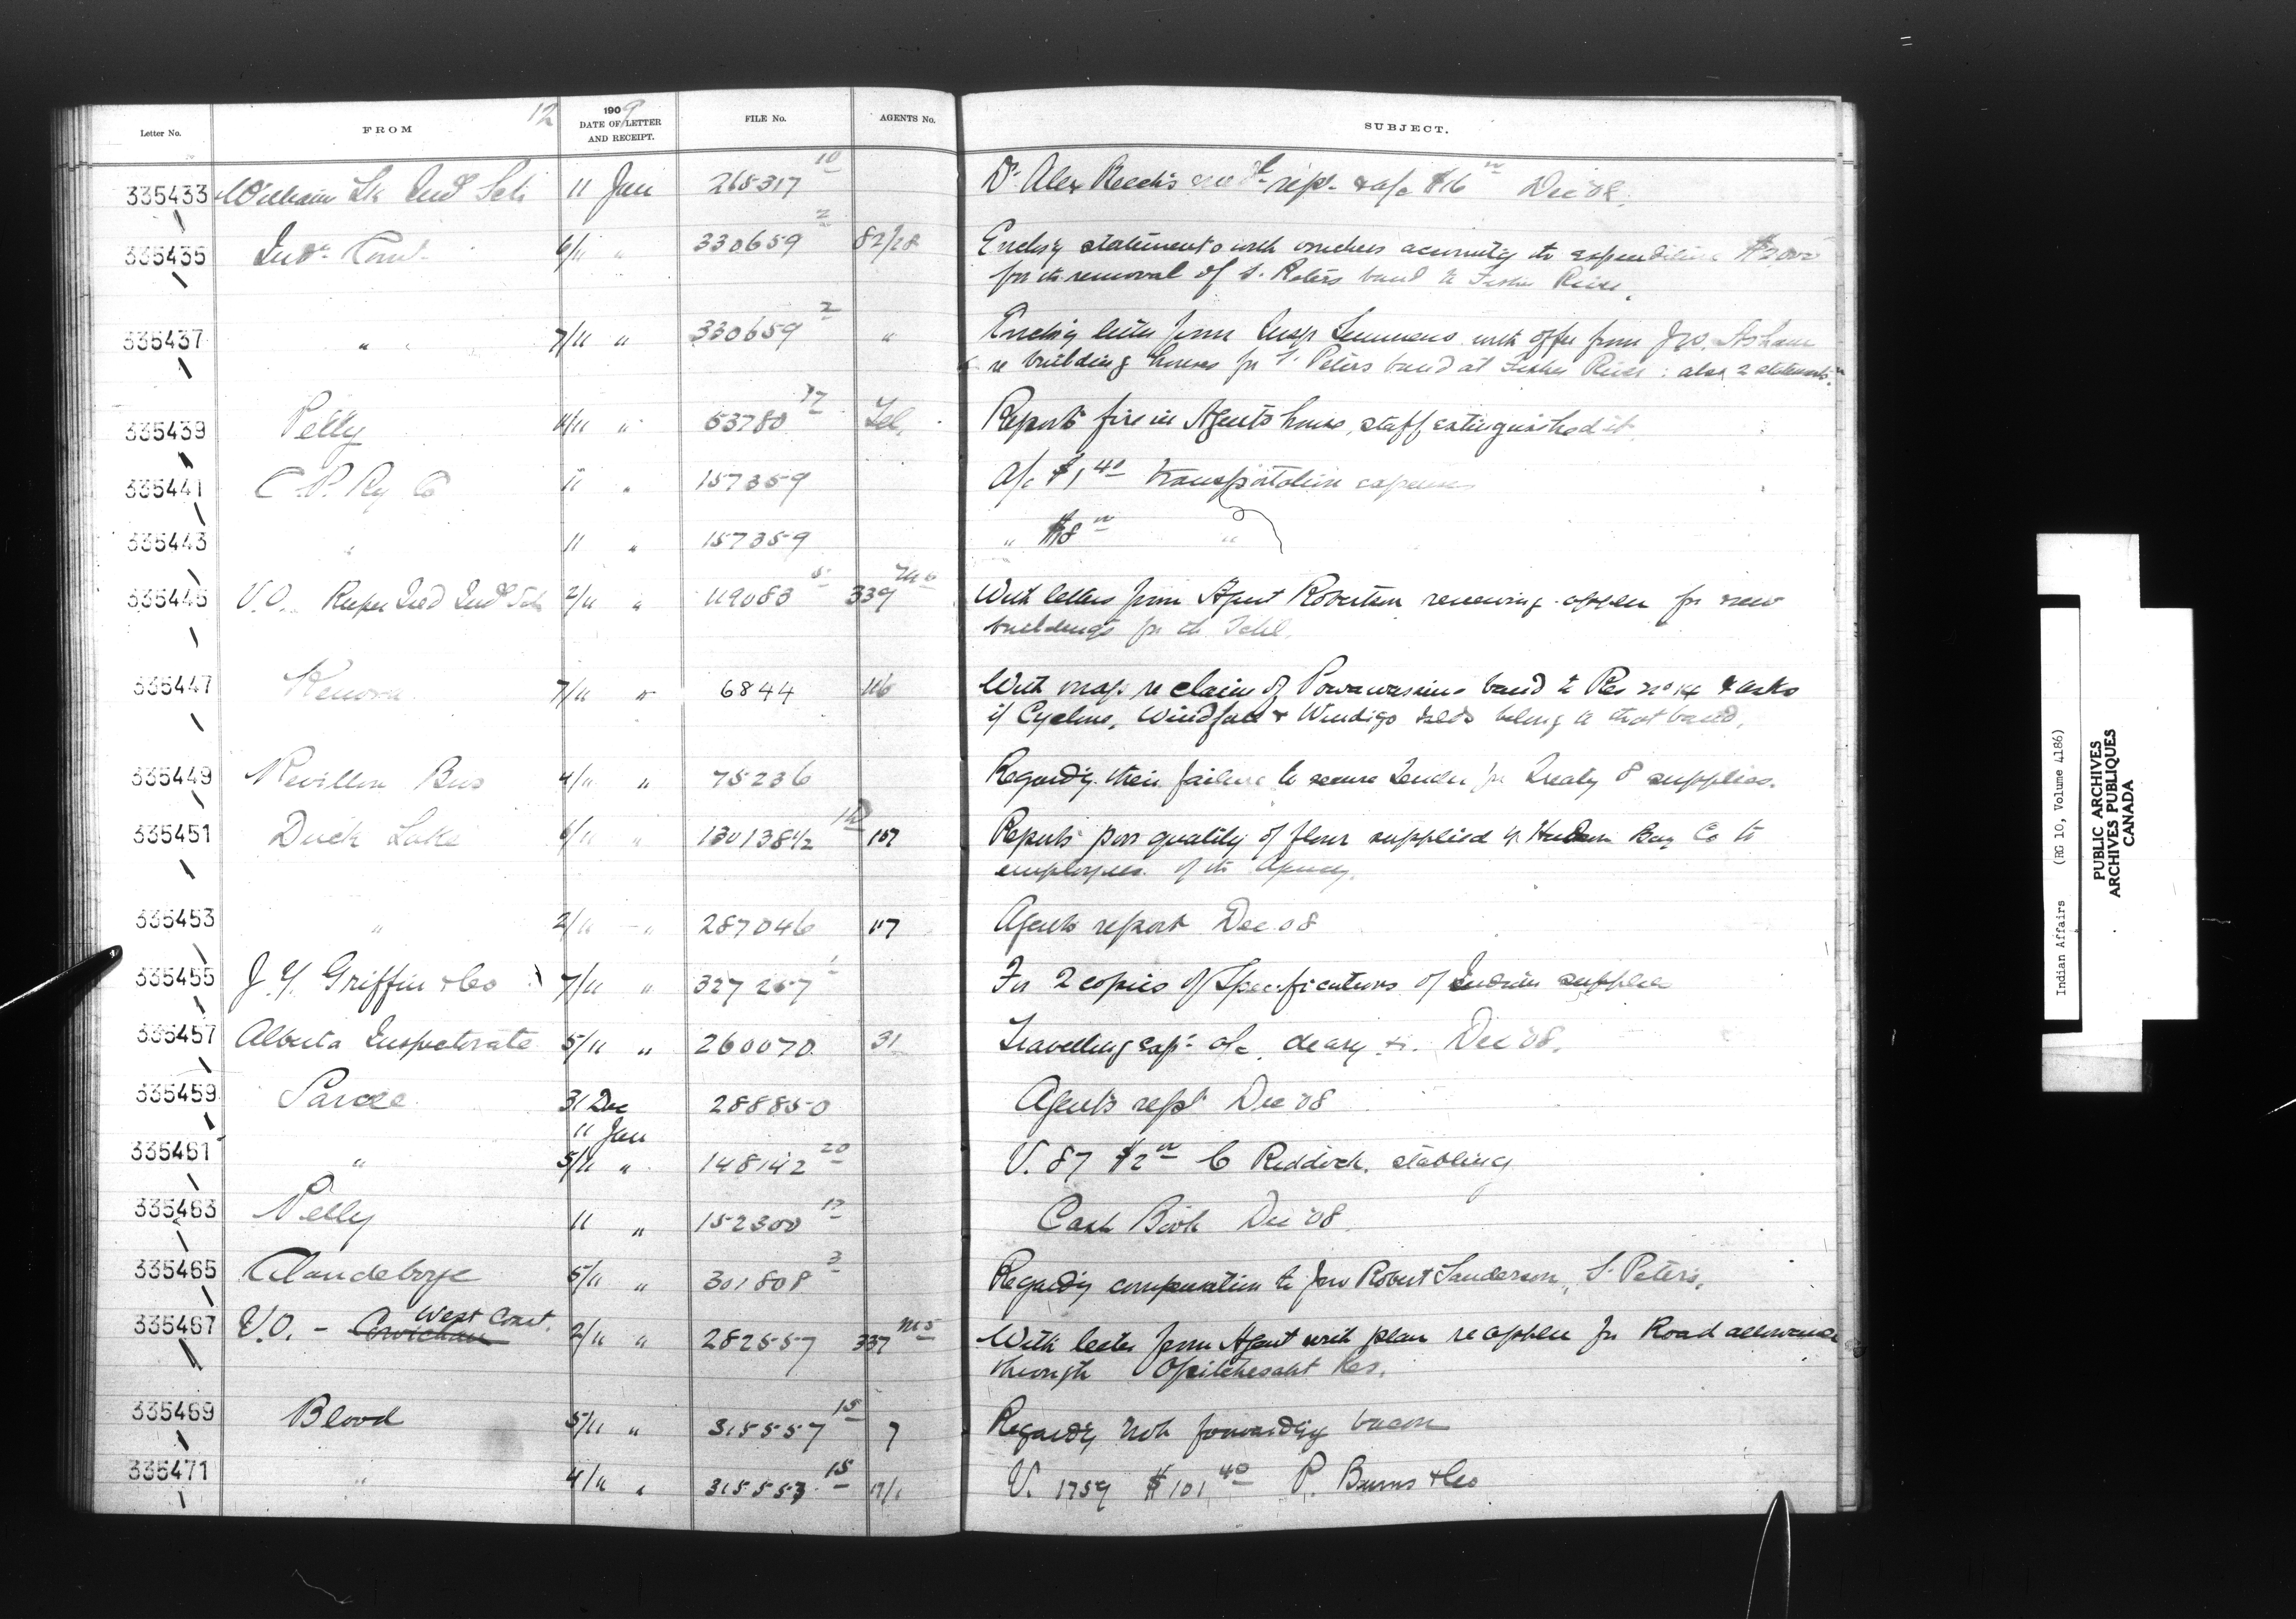 12
Letter No. FROM 1909 DATE OF LETTER AND RECEIPT. FILE No. AGENTS No. SUBJECT.
335433 William Lk Indl Sch 11 Jan 265317 10 Dr Alex repr & a/c $16 Dec '08.
335435 Indn Comr 6/11 " 330659 2 82/28 Enclosg statements with vouchers to expenditure $2,000
for th removal of S. Peters band to Fisher River.
335437 " 7/11 " 330659 2 " Enclosg letter from Insp Semmens with offer from Jno. Asham
re building houses for S. Peters band at Fisher River: also 2 statements.
335439 Pelly 11/11 " 53780 17 Tel. Reports fire in Agents house, staff extinguished it.
335441 C. P. Ry Co 11 " 157359 A/c $1 40 transportation expenses
335443 " 11 " 157359 " $8 "
335445 V.O. Kuper Isld Indl Sch 2/11 " 119083 5 339 M 6 With letters from Agent Robertson renewing applcn for new
buildings for th Schl.
335447 Kenora 7/11 " 6844 116 With map re claim of Powawassins band to Res no 14 & asks
if Cyclone, Windfall & Windigo Islds belong to that band.
335449 Revillon Bros 4/11 " 75236 Regardg their failure to secure tender for Treaty 8 supplies.
335451 Duck Lake 6/11 " 130138 1/2 107 Reports poor quality of flour supplied by Hudson Bay Co to
employees of th Agency.
335453 " 2/11 " 287046 117 Agents report Dec. 08
335455 J. Y. Griffin & Co 7/11 " 327267 1 For 2 copies of Specifications of Indian supplies
335457 Alberta Inspectorate 5/11 " 260070 31 Travelling exps a/c, diary &c. Dec '08.
335459 Sarcee 31 Dec 288850 Agents repr Dec '08
11 Jan
335461 " 5/11 " 148142 20 V. 87 $2 C Riddock. stabling
335463 Pelly 11 " 152300 17 Cash Book Dec '08.
335465 Clandeboye 5/11 " 301808 3 Regardg compensation to Jno Robert Sanderson, S. Peters.
West Coast.
335467 V.O. - Cowichan 2/11 " 282557 337 M 5 With letter from Agent with plan re applcn for Road allowance
through Opitchesaht Res.
335469 Blood 5/11 " 315557 15 7 Regardg not forwardg bacon
335471 " 4/11 " 315553 15 V. 1759 $101 40 P. Burns & Co
Indian Affairs (RG 10, Volume 4186)
PUBLIC ARCHIVES
ARCHIVES PUBLIQUES
CANADA